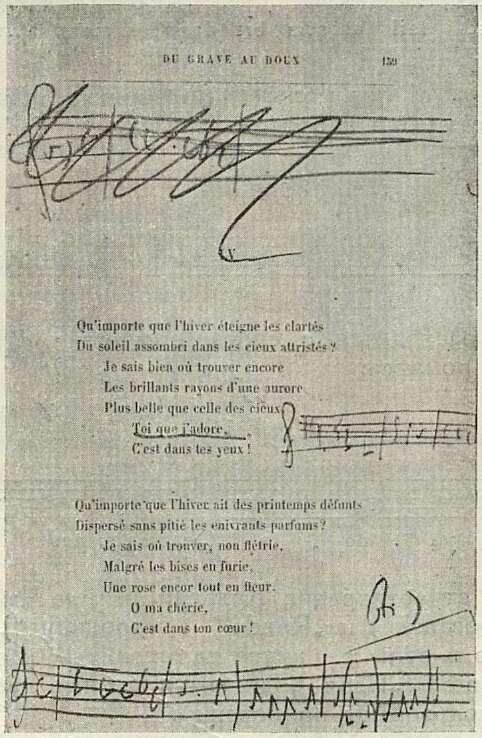 DU GRAVE AU DOUX 159
IV
Qu'importe que l'hiver éteigne les clartés
Du soleil assombri dans les cieux attristés ?
Je sais bien où trouver encore
Les brillants rayons d'une aurore
Plus belle que celle des cieux.
Toi que j'adore,
C'est dans tes yeux !
Qu'importe que l'hiver ait des printemps défunts
Dispersé sans pitié les enivrants parfums ?
Je sais où trouver, non flétrie,
Malgré les bises en furie,
Une rose encor tout en fleur.
O ma chérie,
C'est dans ton cœur !